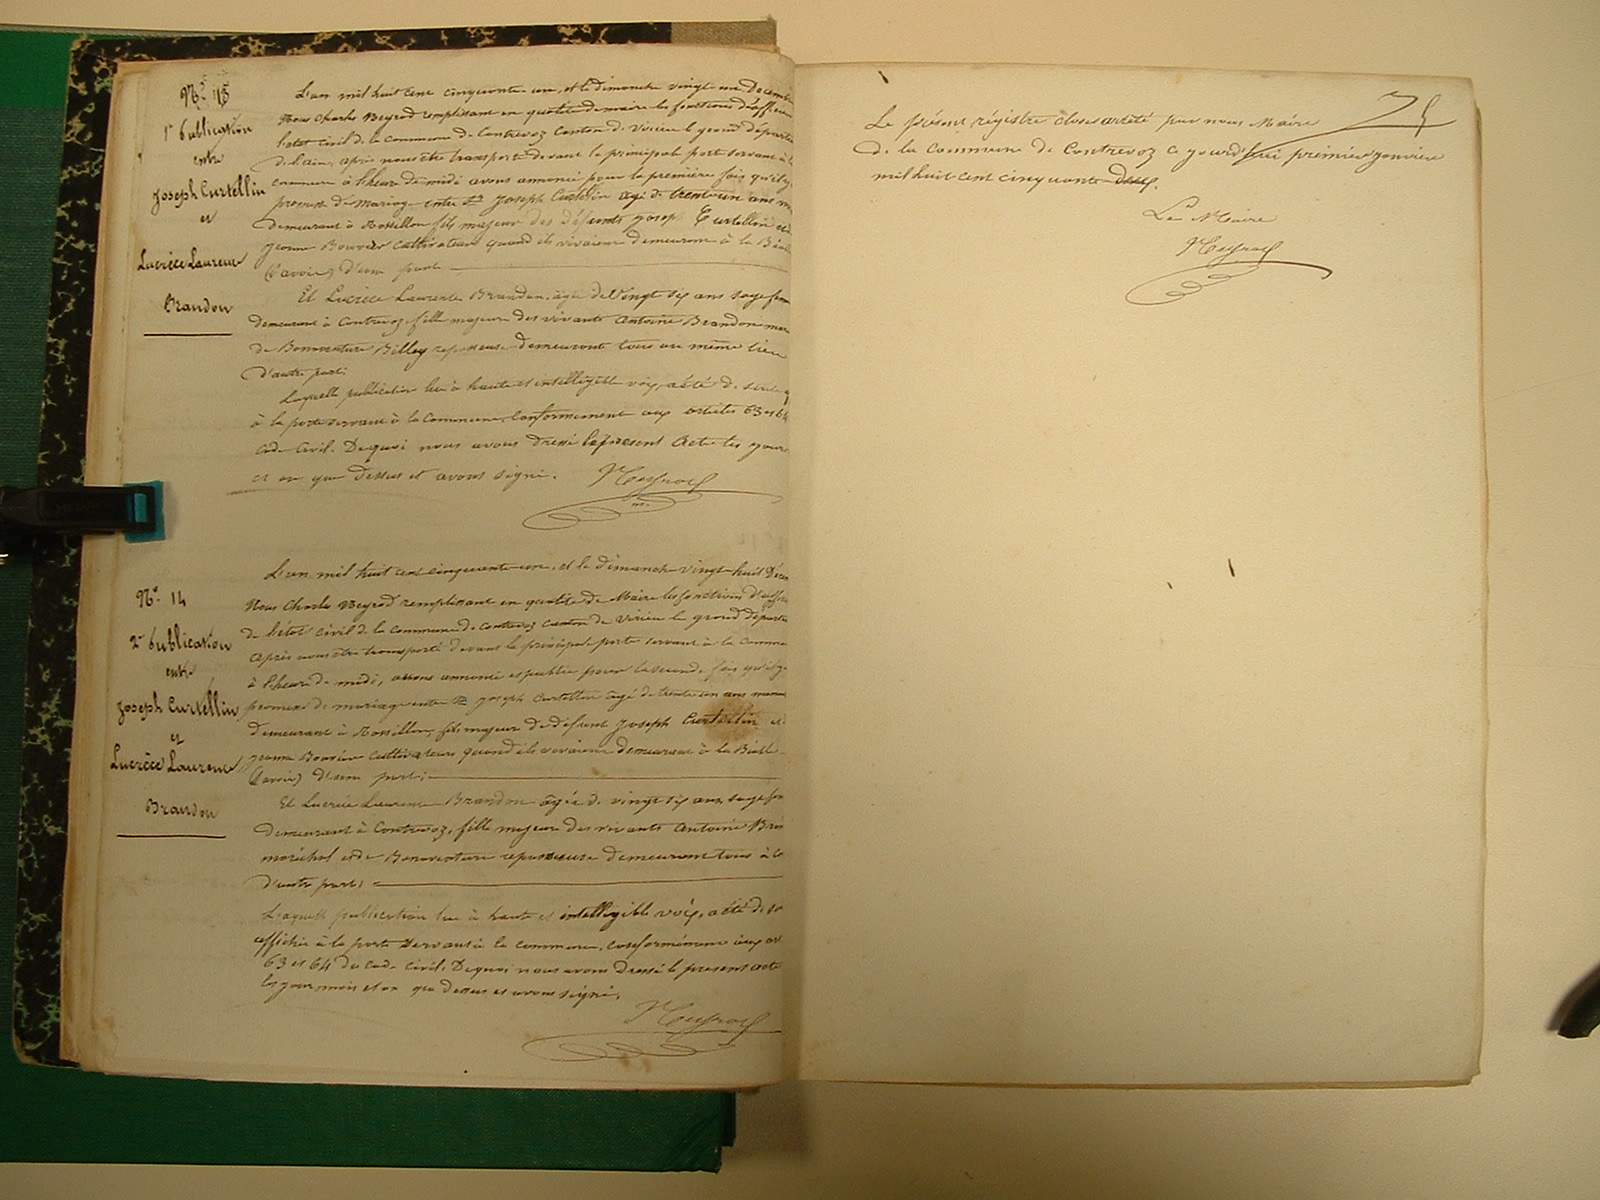 Nº 13
1re Publication
entre
Joseph Curtellin
et
Lucrèce Laurence
Brandon
L'an mil huit cent cinquante un, et le dimanche vingt un Décemb
Nous Charles Neyrod remplissant en qualité de maire les fonctions d'officier
l'état civil de la commune de Contrevoz Canton de Virieu le grand départe
de l'ain, après nous être transporté devant la principale porte servant à la
commune à l'heure de midi avons annoncé pour la première fois qu'il y
promesse de mariage entre Sr Joseph Curtellin agé de trente un ans
demeurant à Rossillon fils majeur des défunts Joseph Curtellin et
Jeanne Bouvier Cultivateurs quand ils vivaient demeurant à la
(Savoie) d'une part
Et Lucrèce Laurence Brandon, agée de Vingt six ans sage fem
demeurant à Contrevoz, fille majeure des vivants Antoine Brandon mar
de Bonaventure Billey repasseuse demeurant tous au même lieu
d'autre part.
Laquelle publication lue à haute et intelligible voix, a été de suite
à la porte servant à la Commune, Conformément aux articles 63 et 64
Code Civil. De quoi nous avons dressé le présent Acte les jour
et an que dessus et avons signé. Neyrod
Nº 14
2e Publication
entre
Joseph Curtellin
et
Lucrèce Laurence
Brandon
L'an mil huit cent cinquante un, et le dimanche vingt huit Décem
Nous Charles Neyrod remplissant en qualité de Maire les fonctions d'officier
de l'état civil de la commune de Contrevoz canton de Virieu le grand départe
après nous être transporté devant la principale porte servant à la commune
à l'heure de midi, avons annoncé et publié pour la seconde fois qu'il y
promesse de mariage entre Sr Joseph Curtellin agé de trente un ans
demeurant à Rossillon, fils majeur de défunt Joseph Curtellin et
Jeanne Bouvier Cultivateurs quand ils vivaient demeurant à la
(Savoie) d'une part;
Et Lucrèce Laurence Brandon agée de vingt six ans, sage fem
demeurant à Contrevoz, fille majeure des vivants Antoine Bran
maréchal et de Bonaventure repasseuse demeurant tous à Co
d'autre part;
Laquelle publication lue à haute et intelligible voix, a été de su
affichée à la porte servant à la commune, conformément aux ar
63 et 64 du Code civil. De quoi nous avons dressé le présent acte
les jour mois et an que dessus et avons signé.
Neyrod
Le présent régistre clos et arrêté par nous Maire
de la commune de Contrevoz ce jourd'hui premier janvier
mil huit cent cinquante deux.
Le Maire
Neyrod